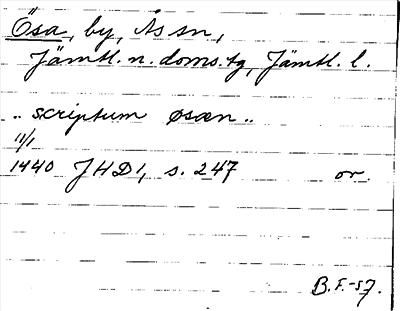 Ösa, by, Ås sn,
Jämtl. n. doms.tg, Jämtl. l.
.. scriptum øsæn ..
11/1
1440 JHD 1, s. 247 or.
B.F.-57.